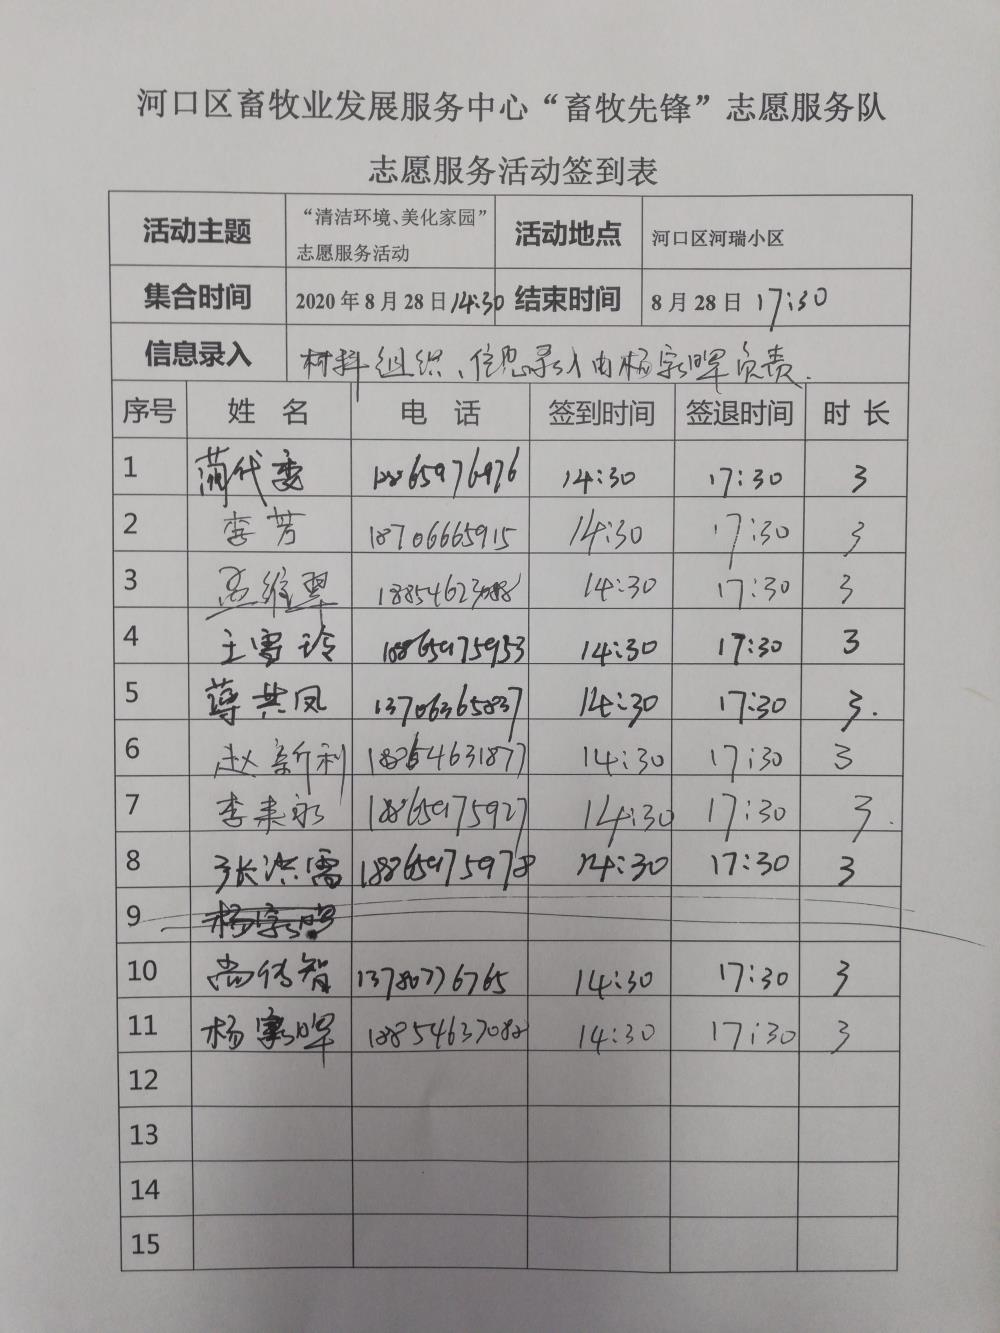 河口区畜牧业发展服务中心“畜牧先锋”志愿服务队
志愿服务活动签到表
活动主题 “清洁环境、美化家园”志愿服务活动 活动地点 河口区河瑞小区
集合时间 2020年8月28日14:30 结束时间 8月28日 17:30
信息录入 材料组织、信息录入由杨家晖负责.
序号 姓名 电话 签到时间 签退时间 时长
1 14:30 17:30 3
2 李芳 18706665915 14:30 17:30 3
3 14:30 17:30 3
4 王雪玲 18865975953 14:30 17:30 3
5 蒋共凤 13706365837 14:30 17:30 3.
6 赵新利 14:30 17:30 3
7 李来永 18865975927 14:30 17:30 3.
8 张洪儒 18865975978 14:30 17:30 3
9
10 尚传智 13780776765 14:30 17:30 3
11 杨家晖 14:30 17:30 3
12
13
14
15